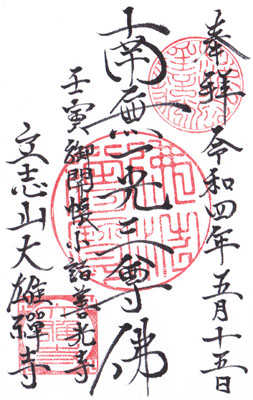 奉拝 令和四年五月十五日
南無一光三尊佛
壬寅御開帳小諸善光寺
立志山大雄禅寺